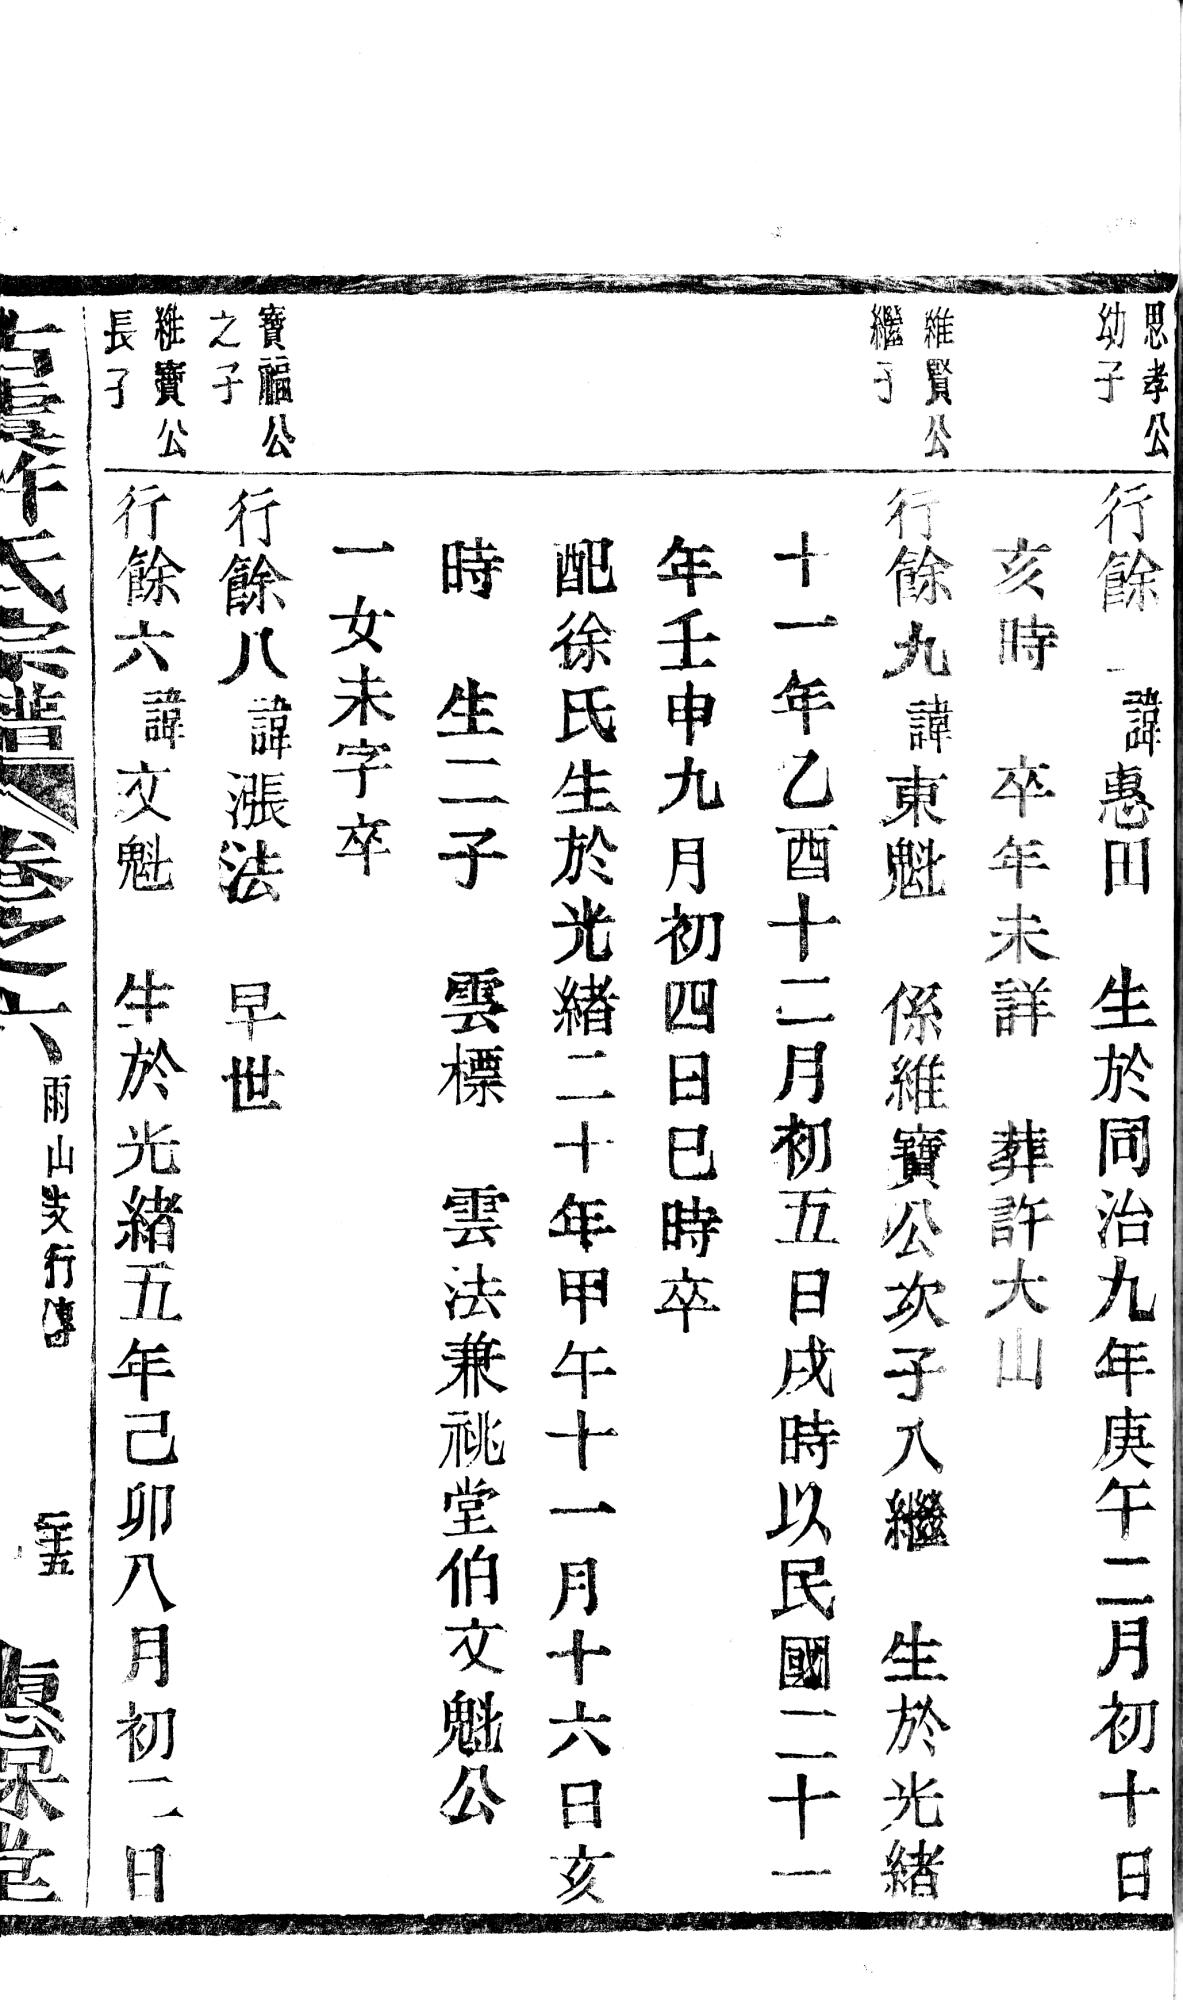 思孝公
幼子
行餘一諱惠田　生於同治九年庚午二月初十日
亥時　卒年未詳　葬許大山
維賢公
繼子
行餘九諱東魁　係維寶公次子入繼　生於光緒
十一年乙酉十二月初五日戌時以民國二十一
年壬申九月初四日巳時卒
配徐氏生於光緒二十年甲午十一月十六日亥
時　生二子　雲標　雲法兼祧堂伯文魁公
一女未字卒
寶福公
之子
行餘八諱漲法　早世
維寶公
長子
行餘六諱文魁　生於光緒五年己卯八月初二日
古虞許氏宗譜　卷之六　雨山支行傳　二十五　惠保堂